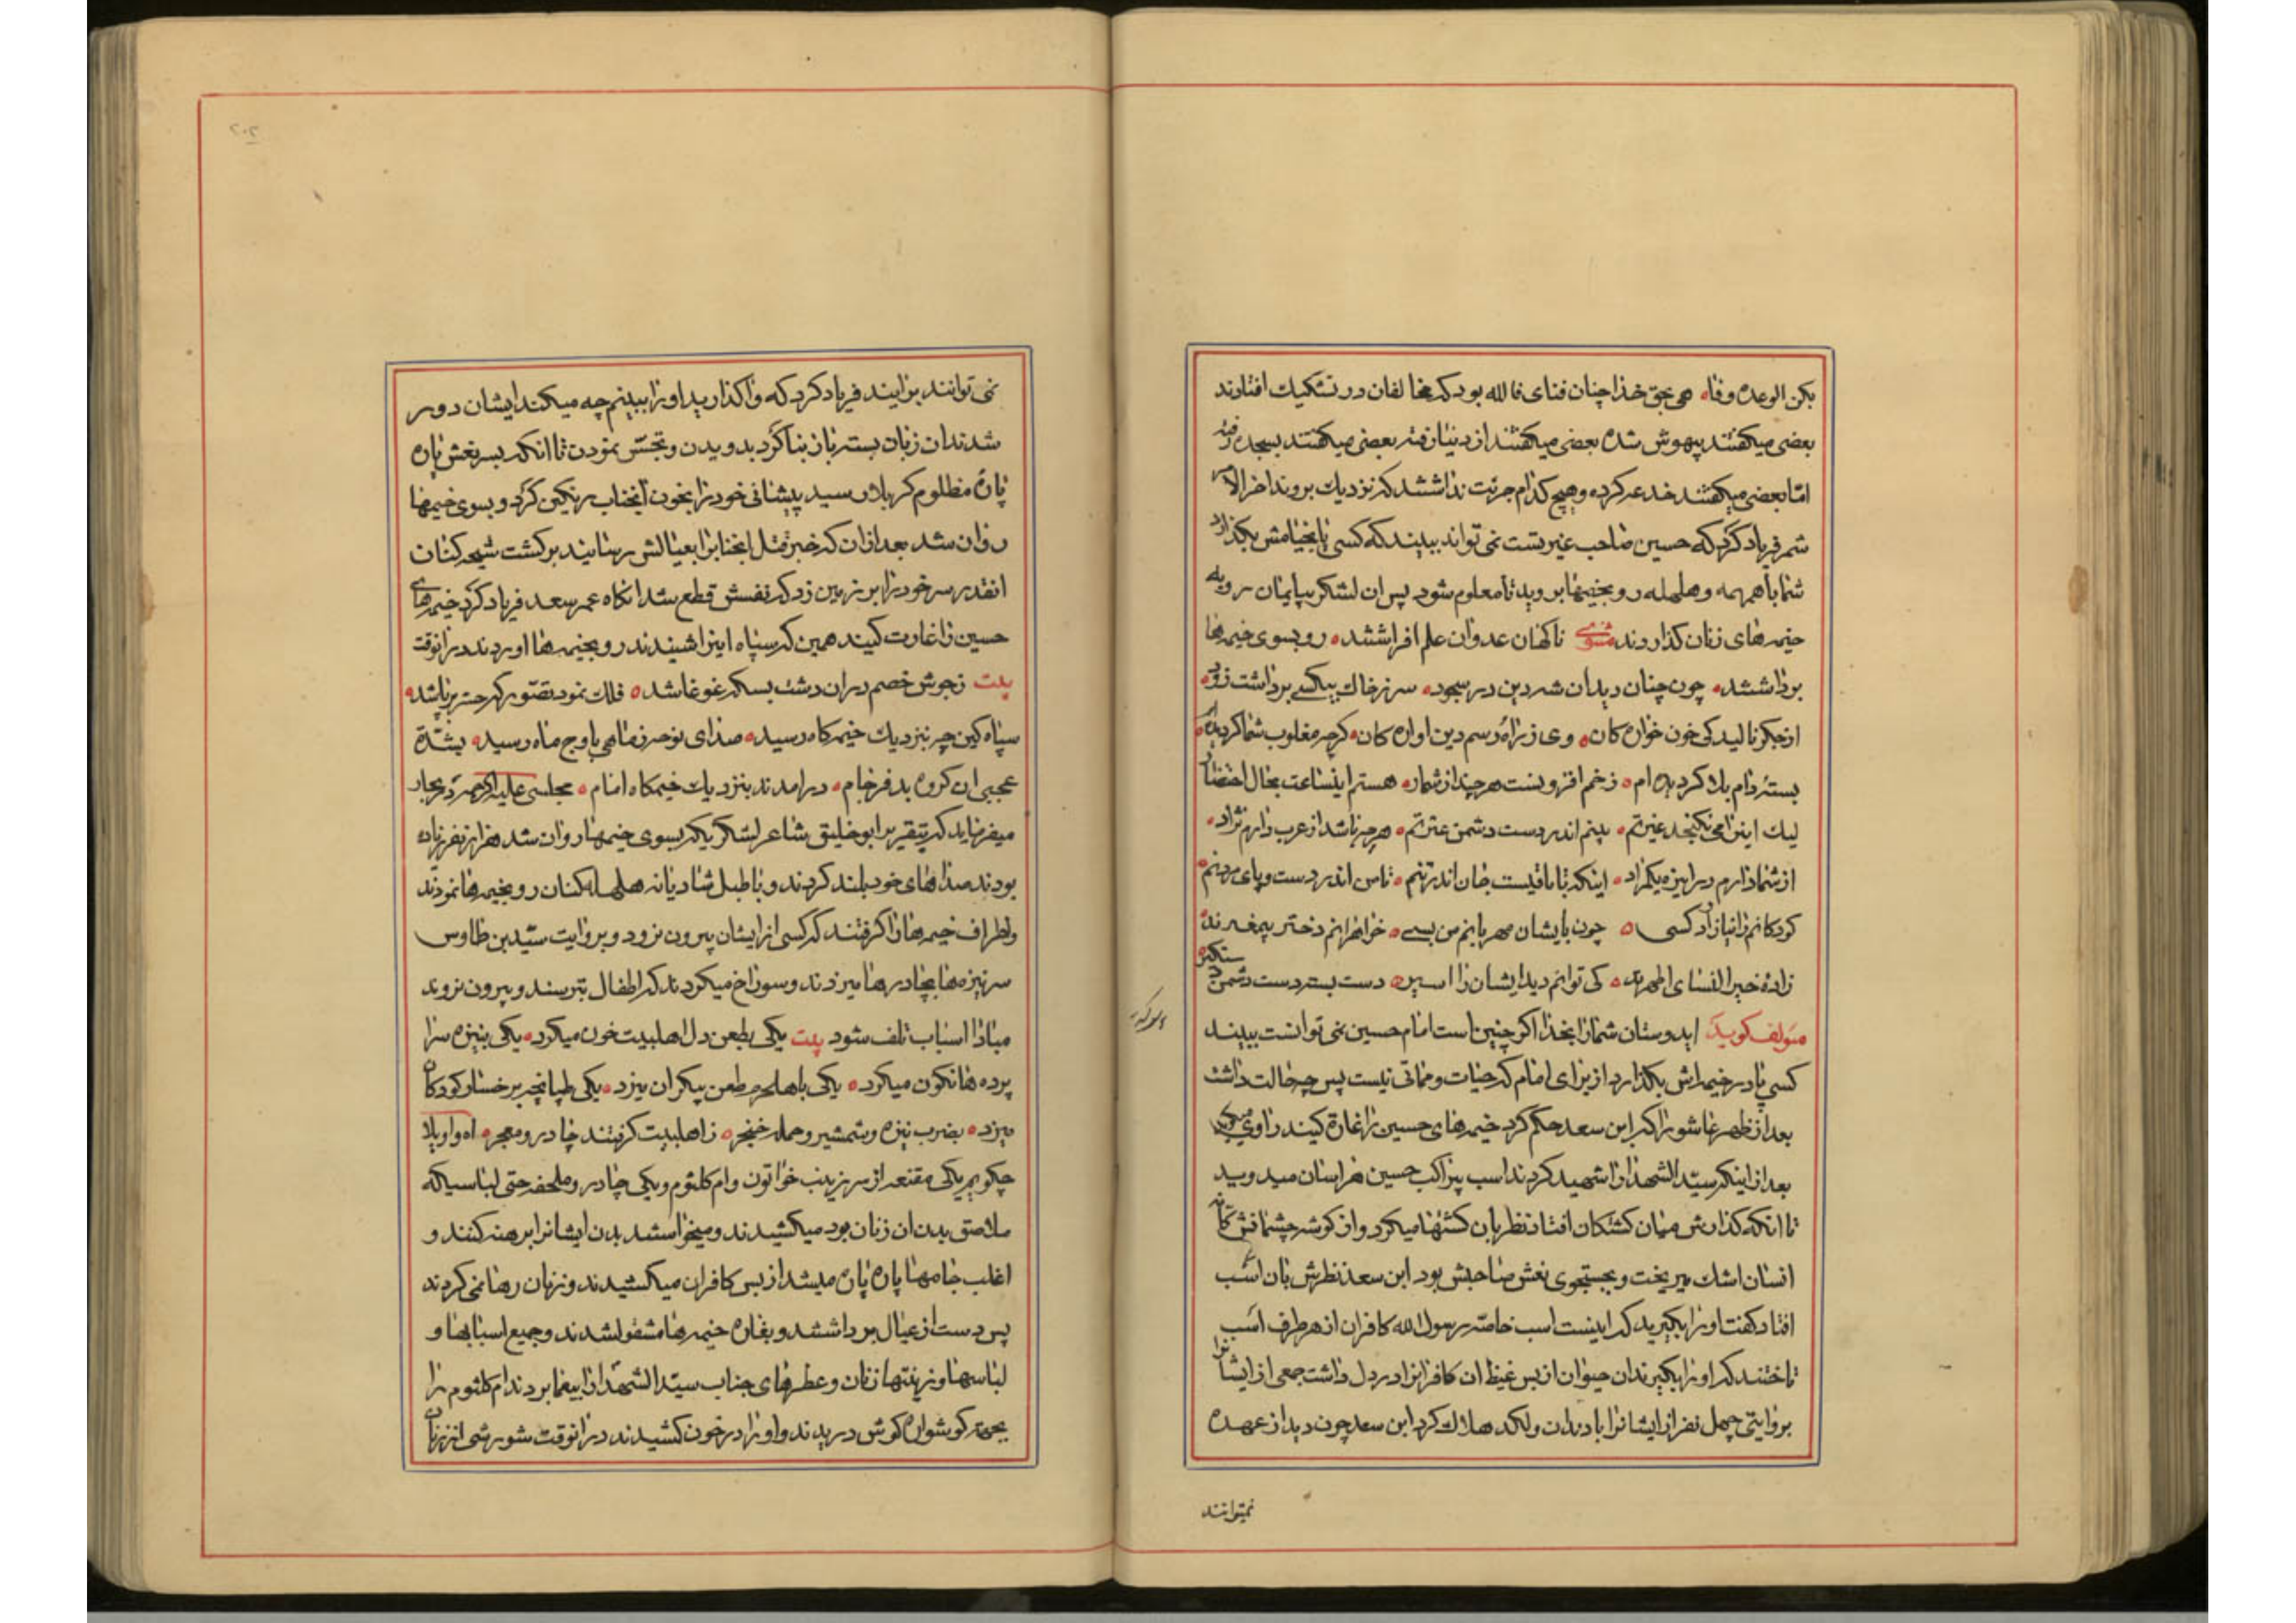 بکن الوعده وفا هی بحق خدا چنان فنای فا لله بود که مخالفان در تشکیک افتادند
بعضی میکفتند بیهوش شده بعضی میکفتند از دنیا رفته بعضی میکفتند بسجده رفته
امّا بعضی میکفتند خدعه کرده و هیچ کدام جرئت نداشتند که نزدیک بروند اخر الامر
شمر فریاد کرد که حسین صاحب غیرتست نمی تواند ببیند که کسی پا بخیامش بکذارد
شما با همهمه و هلهله رو بخیمها بروید تا معلوم شود پس ان لشکر بیایمان رو به
خیمه های زنان کذاردند مثنوی ناکهان عدوان علم افراشتند رو بسوی خیمه ها
برداشتند چون چنان دید ان شه دین در سجود سر ز خاک بیکسی برداشت زود
از جکر نالید کی خون خواره کان وی ز راه و رسم دین اواره کان کرچه مغلوب شما کردیده ام
بستۀ دام بلا کردیده ام زخم افزونست هر چند از شمار هستم اینساعت بحال احتضار
لیک این را می نکنجد غیرتم بینم اندر دست دشمن عترتم هرچه باشد از عرب دارم نژاد
از شما دارم در این ره یکمراد اینکه تا باقیست جان اندر تنم تا من اندر دست و پای مردنم
کودکانم را نیازارد کسی چون بایشان مهربانم من بسی خواهرانم دختر پیغمبرند
زادۀ خیر النسای اطهرند کی توانم دید ایشان را اسیر دست بسته دست دشمن دستکیر
مؤلف کوید ایدوستان شما را بخدا اکر چنین است امام حسین نمی توانست ببیند
کسی پا در خیمه اش بکذارد از برای امام که حیات و مماتی نیست پس چه حالت داشت
بعد از ظهر عاشورا که ابن سعد حکم کرد خیمه های حسین را غارة کنید راوی میکوید
بعد از اینکه سیّد الشهدا را شهید کردند اسب بیراکب حسین هراسان میدوید
تا انکه کذارش میان کشتکان افتاد نظر بان کشتها میکرد و از کوشه چشمانش مانند
انسان اشک میریخت و بجستجوی نعش صاحبش بود ابن سعد نظرش بان اسب
افتاد کفت او را بکیرید که اینست اسب خاصّه رسول الله کافران از هر طرف اسب
تاختند که او را بکیرند ان حیوان از بس غیظ ان کافران را در دل داشت جمعی از ایشانرا
بروایتی چهل نفر از ایشانرا با دندان و لکد هلاک کرد ابن سعد چون دید از عهده
نمیتوانند
۲۰۲
نمی توانند برایند فریاد کرد که واکذارید او را ببینم چه میکند ایشان دور
شدند ان زبان بسته باز بنا کرد بدویدن و تجسّس نمودن تا انکه بسر نعش پاره
پارۀ مظلوم کربلا رسید پیشانی خود را بخون انجناب رنکین کرد و بسوی خیمها
روان شد بعد از ان که خبر قتل انجناب را بعیالش رسانید برکشت شیهه کنان
انقدر سر خود را بر زمین زد که نفسش قطع شد انکاه عمر سعد فریاد کرد خیمه های
حسین را غارت کنید همین که سپاه این را شنیدند رو بخیمه ها اوردند در انوقت
بیت زجوش خصم در ان دشت بسکه غوغا شد فلک نمود تصّور که حشر برپا شد
سپاه کین چه بنزدیک خیمه کاه رسید صدای نوحه ز ماهی باوج ماه رسید بشدّة
عجبی ان کروه بد فرجام در امدند بنزدیک خیمکاه امام مجلسی علیه الرحمه در بحار
میفرماید که بتقریر ابو خلیق شاعر لشکر یکه بسوی خیمها روان شد هزار نفر زیاده
بودند صداهای خود بلند کردند و با طبل شادیانه هلهله کنان رو بخیمه ها نمودند
و اطراف خیمه ها را کرفتند که کسی از ایشان بیرون نرود و بروایت سیّد بن طاوس
سر نیزه ها بچادرها میزدند و سوراخ میکردند که اطفال بترسند و بیرون نروند
مبادا اسباب تلف شود بیت یکی بطعن دل اهلبیت خون میکرد یکی بنیزه سرا
پرده ها نکون میکرد یکی باهلحرم طعن بیکران میزد یکی طپانچه بر خسار کودکان
میزد بضرب نیزه و شمشیر و حمله خنجر ز اهلبیت کرفتند چادر و معجر اه واویلا
چکویم یکی مقنعه از سر زینب خواتون و ام کلثوم و یکی چادر و ملحفه حتی لباسیکه
ملاصق بدن ان زنان بود میکشیدند و میخواستند بدن ایشانرا برهنه کنند و
اغلب جامها پاره پاره میشد از بس کافران میکشیدند و زنان رها نمی کردند
پس دست از عیال برداشتند و بغارة خیمه ها مشغول شدند و جمیع اسبابها و
لباسها و زینتها زنان و عطرهای جناب سیّد الشهدا را بیغما بردند ام کلثوم را
بجهة کوشواره کوش دریدند و او را در خون کشیدند در انوقت شورشی از زنان